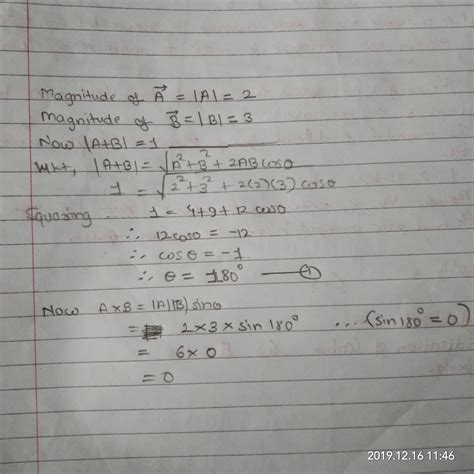 Magnitude of A⃗ = |A| = 2
Magnitude of B⃗ = |B| = 3
Now |A+B| = 1
Wkt, |A+B| = √A²+B²+2ABcosθ
1 = √2²+3²+2(2)(3)cosθ
Squaring 1 = 4+9+12cosθ
∴ 12cosθ = -12
∴ cosθ = -1
∴ θ = 180° — ①
Now A×B = |A||B| sinθ
= 2×3×sin180° ... (sin180° = 0)
= 6×0
= 0
2019.12.16 11:46